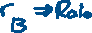 r_B ⇒ Rate